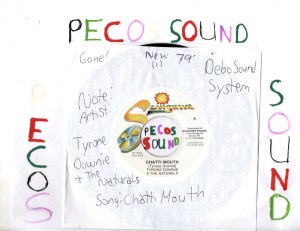 PECOS SOUND
Gone!
New 79'
(1)
Debo Sound
System
Note
Artist
Tyrone
Downie
+ The Naturals
Song-Chatti Mouth
PECOS
SOUND
Sunshine
PECOS
SOUND
A
CHATTI MOUTH
(Tyrone Downie)
TYRONE DOWNIE
& THE NATURALS